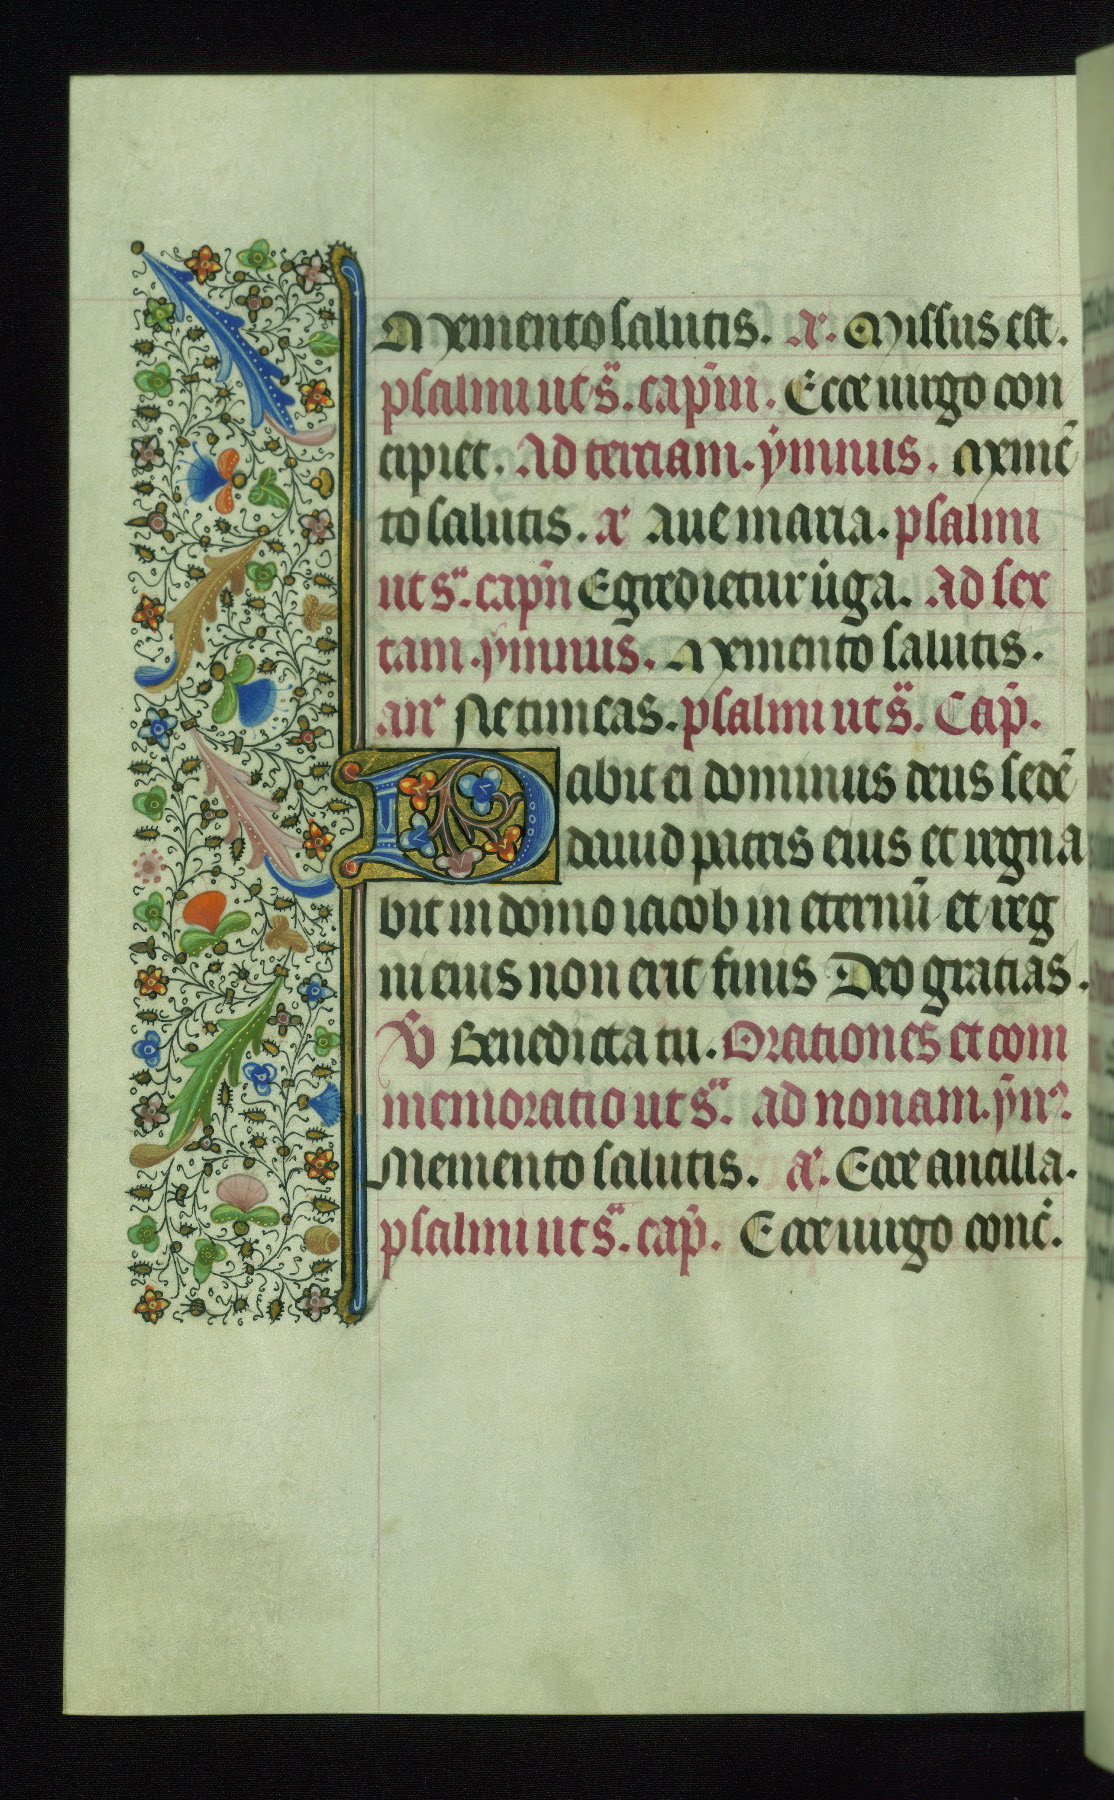 Memento salutis. Aͬ. Missus est.
psalmi ut sͣ. cap̄m. Ecce uirgo con
cipiet. Ad terciam. ẏmnus. Memē
to salutis. aͬ Aue maria. psalmi
ut sͣ. cap̄m Egredietur uͥga. Ad sex
tam. ẏmnus. Memento salutis.
anͬ Ne timeas. psalmi ut sͣ. Cap̄.
Dabit ei dominus deus sedē
dauid patris eius et regna
bit in domo iacob in eternū et reg
ni eius non erit finis Deo gratias.
V̄ Benedicta tu. Orationes et com
memoratio ut sͣ. ad nonam. ẏn᷒.
Memento salutis. aͬ. Ecce ancilla.
psalmi ut sͣ. cap̄. Ecce uirgo conc̄.